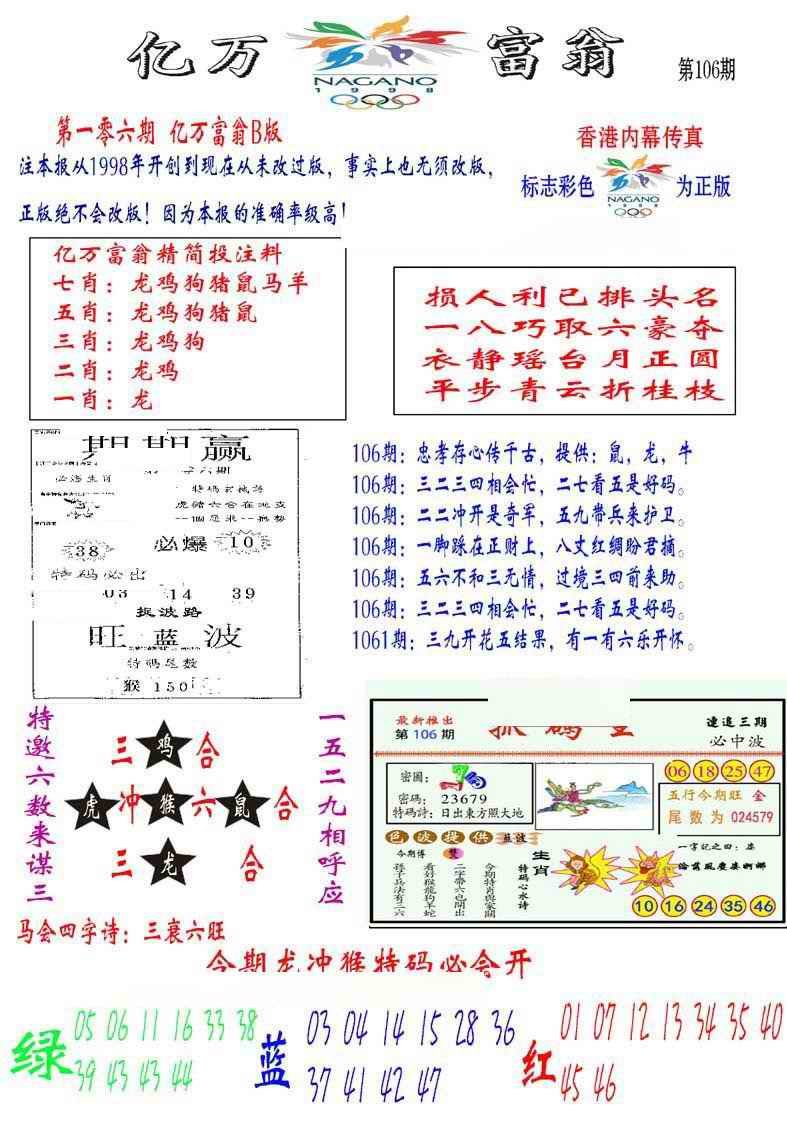 亿万富翁
NAGANO
1998
第106期
第一零六期 亿万富翁B版
注本报从1998年开创到现在从未改过版，事实上也无须改版，
正版绝不会改版！因为本报的准确率级高！
香港内幕传真
标志彩色
NAGANO
1998
为正版
亿万富翁精简投注料
七肖：龙鸡狗猪鼠马羊
五肖：龙鸡狗猪鼠
三肖：龙鸡狗
二肖：龙鸡
一肖：龙
损人利已排头名
一八巧取六豪夺
衣静瑶台月正圆
平步青云折桂枝
期期赢
必爆
38
10
特码必出
03 14 39
捉波路
旺 蓝 波
特碼尽数
猴 150
106期：忠孝存心传千古，提供：鼠，龙，牛
106期：三二三四相会忙，二七看五是好码。
106期：二二冲开是奇军，五九带兵来护卫。
106期：一脚踩在正财上，八丈红绸盼君摘。
106期：五六不和三无情，过境三四前来助。
106期：三二三四相会忙，二七看五是好码。
1061期：三九开花五结果，有一有六乐开怀。
特邀六数来谋三
三 鸡 合
虎 冲 猴 六 鼠 合
三 龙 合
一五二九相呼应
最新推出
第 106 期
連追三期
必中波
密圖：
密碼： 23679
特碼詩：日出東方照大地
06 18 25 47
五行今期旺 金
尾数为 024579
色波提供 藍波
今期博 雙
孫子兵法有二六
看好猴龍狗羊蛇
二字帶六也開出
今期特肖與家關
特码心水诗
生肖
一字記之曰：柒
10 16 24 35 46
马会四字诗：三衰六旺
今期龙冲猴特码必会开
绿
05 06 11 16 33 38
39 43 43 44
蓝
03 04 14 15 28 36
37 41 42 47
红
01 07 12 13 34 35 40
45 46